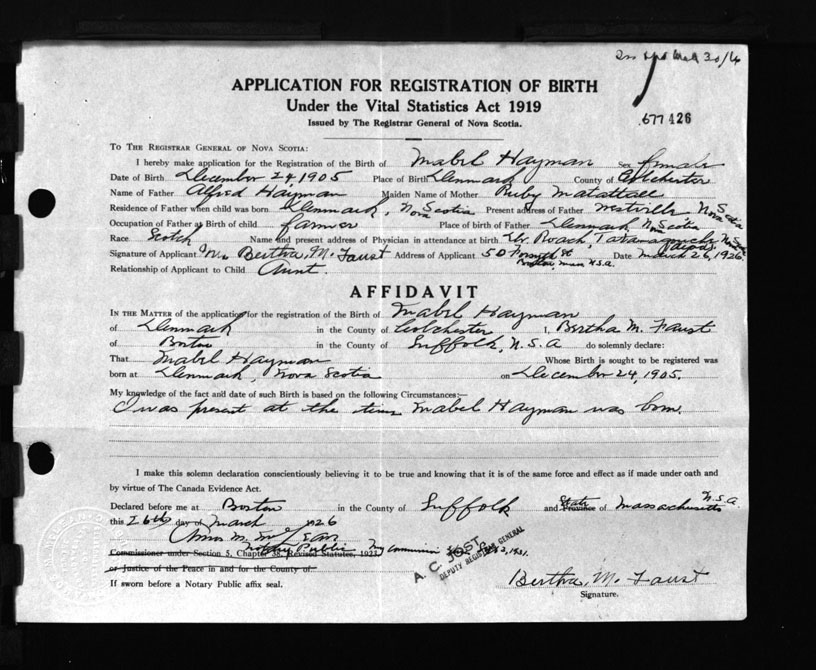 APPLICATION FOR REGISTRATION OF BIRTH
Under the Vital Statistics Act 1919
Issued by The Registrar General of Nova Scotia.
677426
To The Registrar General of Nova Scotia:
I hereby make application for the Registration of the Birth of Mabel Hayman Sex female
Date of Birth December 24 1905 Place of Birth Denmark County of Colchester
Name of Father Alfred Hayman Maiden Name of Mother Ruby Matattall
Residence of Father when child was born Denmark, Nova Scotia Present address of Father Westville Nova Scotia
Occupation of Father at Birth of child farmer Place of birth of Father Denmark Nova Scotia
Race Scotch Name and present address of Physician in attendance at birth Dr. Roach Tatamagouche
Signature of Applicant Mrs Bertha M. Faust Address of Applicant 50 Forsyth St Boston, Mass U.S.A. Date March 26, 1926.
Relationship of Applicant to Child Aunt.
AFFIDAVIT
In the Matter of the application for the registration of the Birth of Mabel Hayman
of Denmark in the County of Colchester I, Bertha M. Faust
of Boston in the County of Suffolk, U.S.A do solemnly declare:
That Mabel Hayman Whose Birth is sought to be registered was
born at Denmark, Nova Scotia on December 24, 1905.
My knowledge of the fact and date of such Birth is based on the following Circumstances:—
I was present at the time Mabel Hayman was born.
I make this solemn declaration conscientiously believing it to be true and knowing that it is of the same force and effect as if made under oath and
by virtue of The Canada Evidence Act.
Declared before me at Boston in the County of Suffolk and State Province of Massachusetts U.S.A.
this 26th day of March 1926
Notary Public My Commission
Commissioner under Section 5, Chapter 38, Revised Statutes, 1923
or Justice of the Peace in and for the County of
If sworn before a Notary Public affix seal.
A. C. JOST
DEPUTY REGISTRAR GENERAL
Bertha M. Faust
Signature.